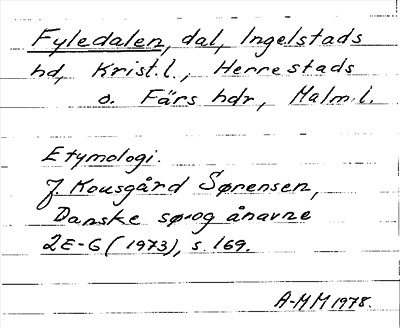 Fyledalen, dal, Ingelstads
hd, Krist.l., Herrestads
o. Färs hdr, Malm.l.
Etymologi.
J. Kousgård Sørensen,
Danske sø- og ånavne
2E-G (1973), s. 169.
A-MM 1978.